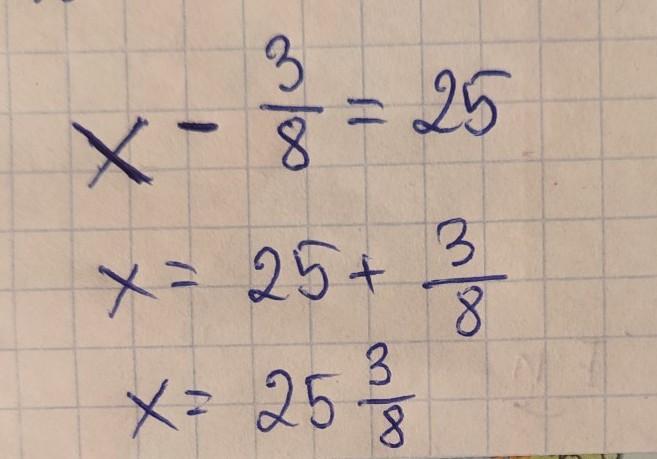 x - 3/8 = 25
x = 25 + 3/8
x = 25 3/8